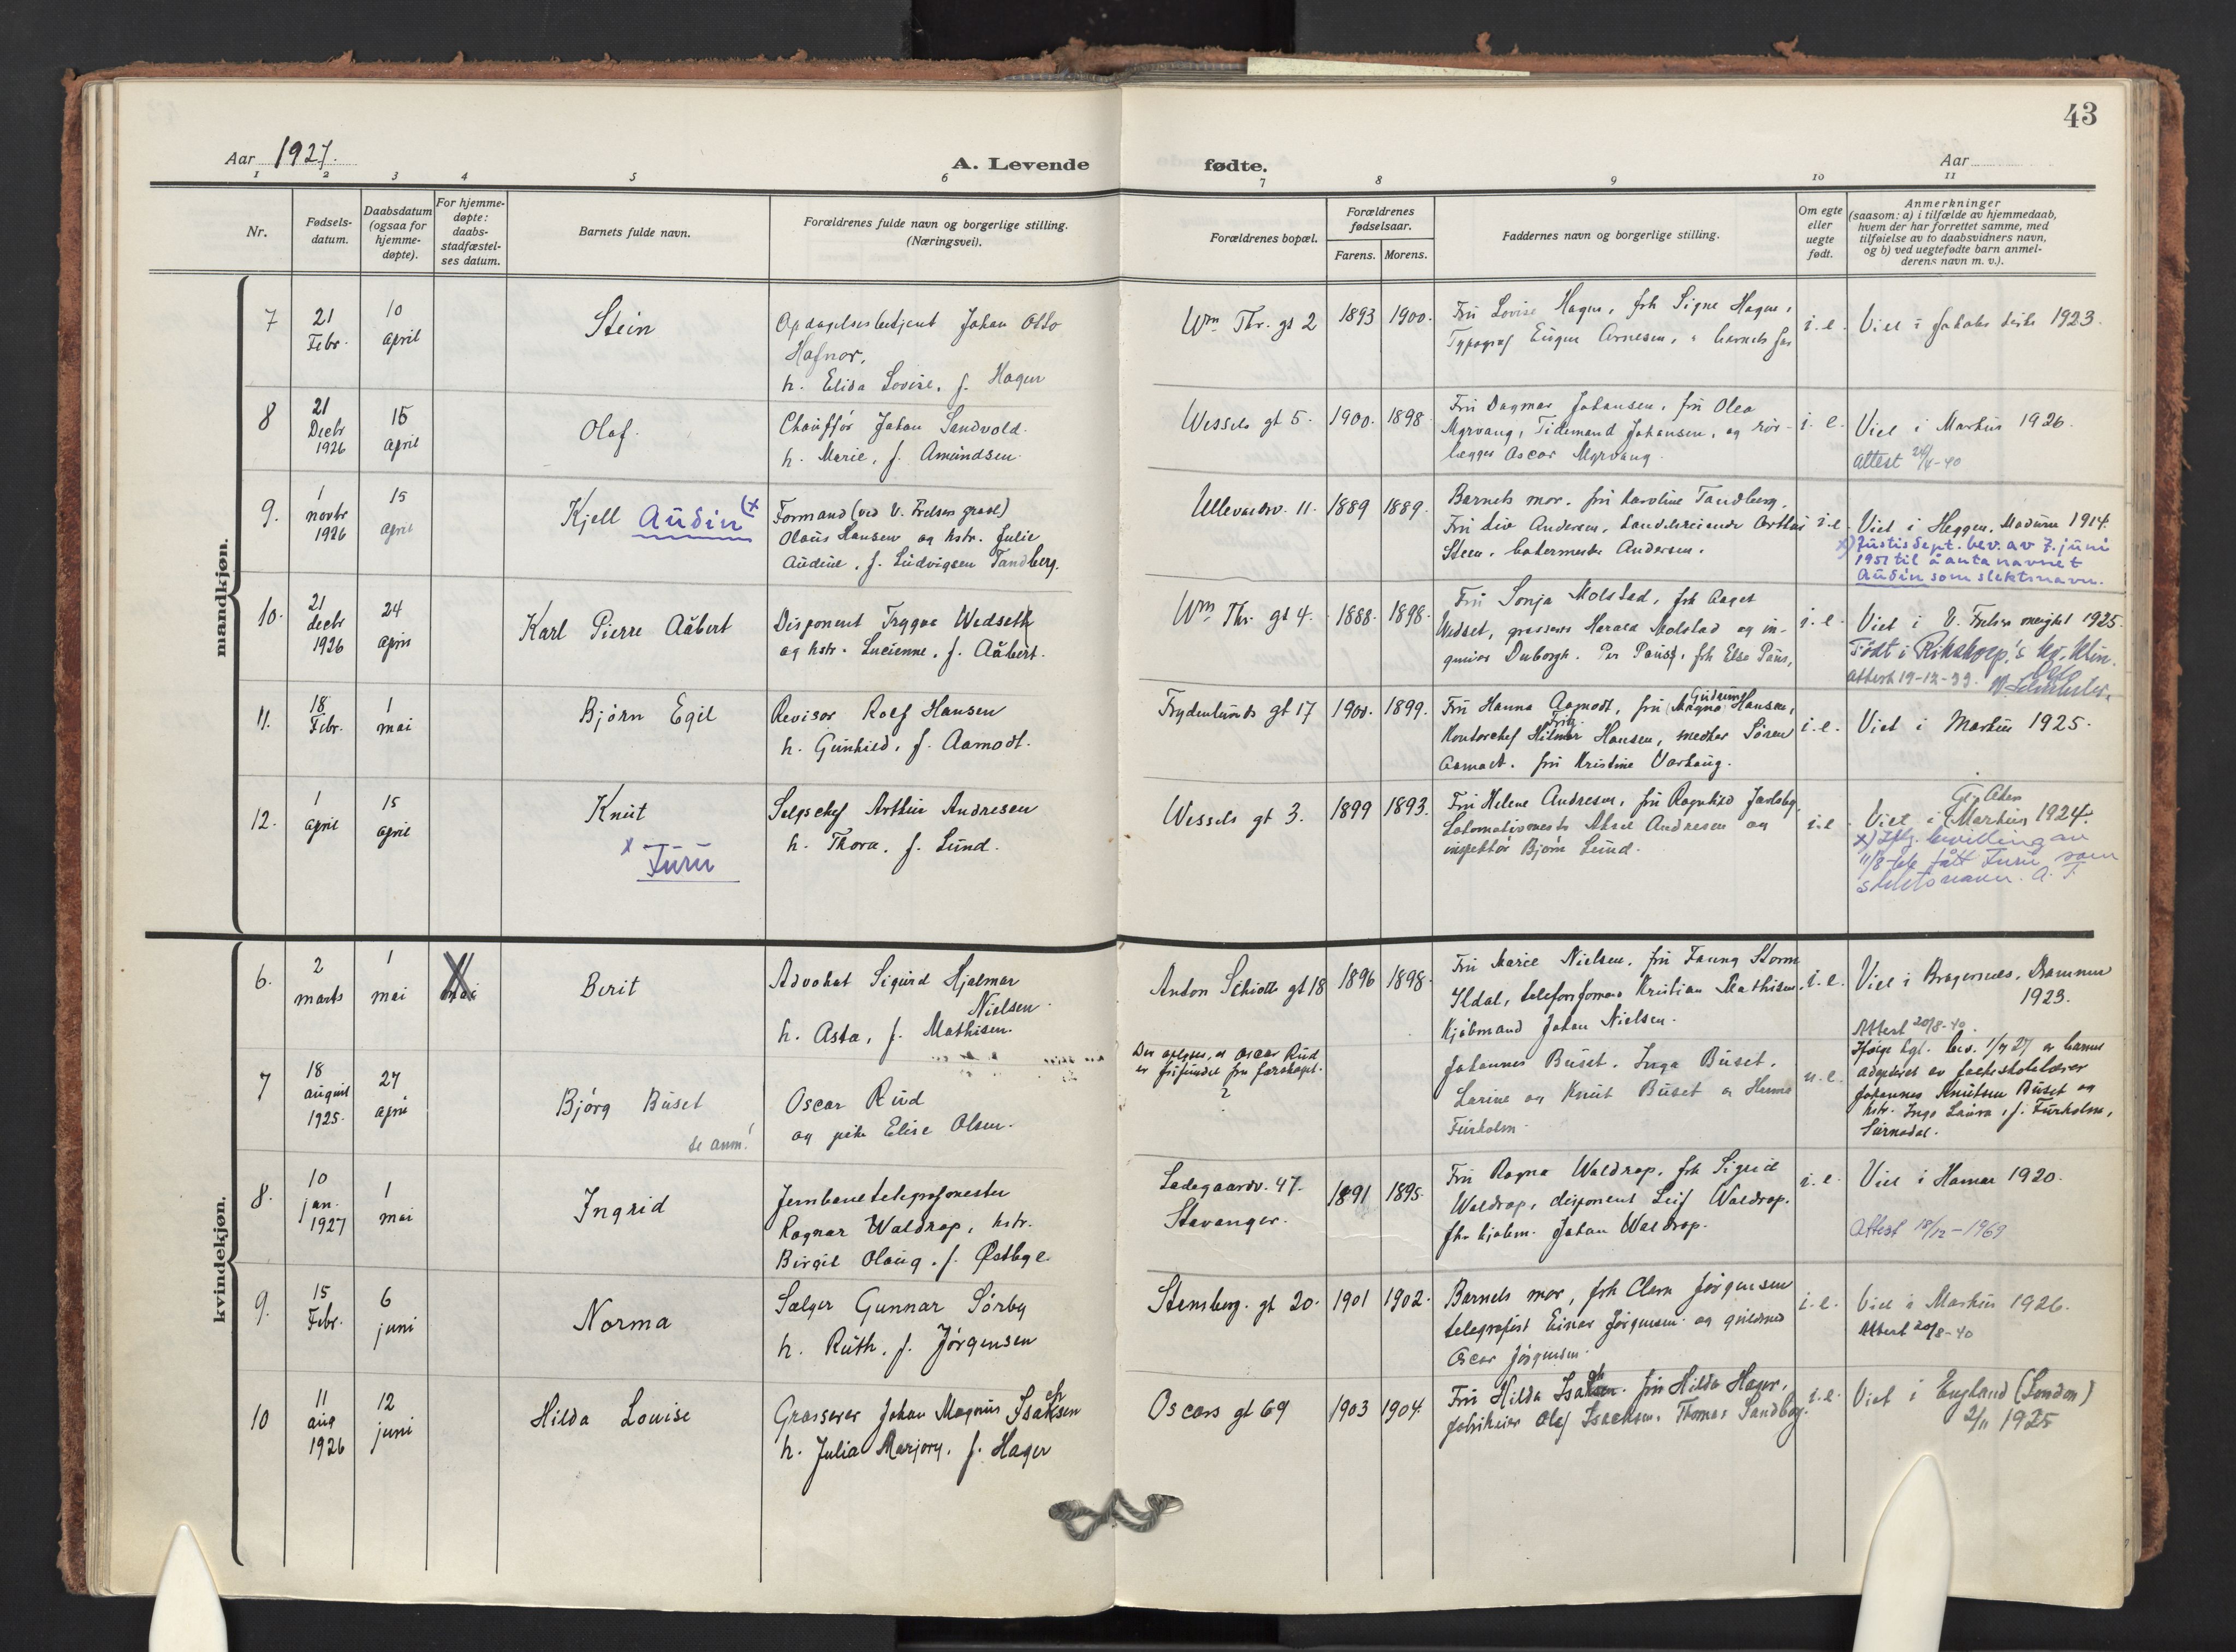 43
Aar 1927.
A. Levende fødte.
Aar
1 2 3 4 5 6 7 8 9 10 11
Nr.
Fødsels-
datum.
Daabsdatum
(ogsaa for
hjemme-
døpte).
For hjemme-
døpte:
daabs-
stadfæstel-
ses datum.
Barnets fulde navn.
Forældrenes fulde navn og borgerlige stilling.
(Næringsvei).
Forældrenes bopæl.
Forældrenes
fødselsaar.
Farens. Morens.
Faddernes navn og borgerlige stilling.
Om egte
eller
uegte
født.
Anmerkninger
(saasom: a) i tilfælde av hjemmedaab,
hvem der har forrettet samme, med
tilføielse av to daabsvidners navn,
og b) ved uegtefødte barn anmel-
derens navn m. v.).
mandkjøn.
7
21
Febr.
10
april
Stein
Opdagelsesbetjent Johan Otto
Hafnor,
h. Elida Lovise, f. Hagen
Wm Thr. gt 2
1893 1900.
Fru Lovise Hagen, frk Signe Hagen,
Typograf Eugen Arnesen, barnets far
i. e.
Viet i Jakobs kirke 1923.
8
21
Decbr
1926
15
april
Olaf.
Chauffør Johan Sandvold.
h. Marie, f. Amundsen.
Wessels gt 5.
1900. 1898.
Fru Dagmar Johansen, fru Olea
Myrvang, Tidemand Johansen, og rør-
lægger Oscar Myrvang.
i. e.
Viet i Markus 1926.
Attest 24/4-40
9.
1
novbr
1926
15
april
Kjell Audin (x
Formand (ved V. Frelsers gravl)
Olaus Hansen og hstr. Julie
Audine, f. Ludvigsen Tandberg.
Ullevaalsv. 11.
1889 1889.
Barnets mor, fru Karoline Tandberg,
Fru Liv Andersen,
Steen, Andersen.
i. e.
Viet i Heggen, Modum 1914.
x) Justisdept. bev. av 7. juni
1951 til å anta navnet
Audin som slektsnavn.
10.
21
decbr
1926
24
april
Karl Pierre Aåbert
Disponent Trygve Wedseth
og hstr. Lucienne, f. Aåbert.
Wm Thr. gt 4.
1888. 1898.
Fru Sonja Molstad, frk Aagot
Wedset, grosserer Harald Molstad og in-
geniør Duborgh. Per Paus, frk Else Paus,
i. e.
Viet i V. Frelsers menighet 1925.
Født i Rikshosp.'s kv. klin.
Attest 19-12-39.
11.
18
Febr.
1
mai
Bjørn Egil
Revisor Rolf Hansen
h. Gunhild, f. Aamodt.
Frydenlunds gt 17
1900. 1899.
Fru Hanna Aamodt, fru (Magna) Gudrun Hansen,
Kontorchef Hilmar Fritz Hansen, Søren
Aamodt, fru Kristine Varhaug.
i. e.
Viet i Markus 1925.
12.
1
april
15
april
Knut
x Furu
Salgschef Arthur Andresen
h. Thora, f. Lund.
Wessels gt 3.
1899 1893.
Fru Helene Andresen, fru Ragnhild Jarlsby,
Lokomotivmester Aksel Andresen og
inspektør Bjørn Lund.
i. e.
Gl. Aker
Viet i (Markus 1924.
x) Iflg. bevilling av
fått Furu som
slektsnavn. A. F.
kvindekjøn.
6.
2
marts
1
mai
mai
Berit
Advokat Sigurd Hjalmar
Nielsen
h. Asta, f. Mathisen.
Anton Schiøtts gt 18
1896 1898.
Fru Marie Nielsen, fru Fanny Storm
Ildal, telefonformand Kristian Mathisen,
Kjøbmand Johan Nielsen.
i. e.
Viet i Bragernes, Drammen
1923.
Attest 20/8-40.
7
18
august
1925.
24
april
Bjørg Buset
se anm!
Oscar Rud
og pike Elise Olsen.
Det oplyses, at Oscar Rud
er frifundet for farskapet.
?
Johannes Buset, Inga Buset,
Larina og Knut Buset og
Furholm.
u. e.
Ifølge kgl. bev. 1/7 27 er barnet
adoptert av
Johannes Knutsen Buset og
hstr. Inga Laura, f. Furholm,
Surnadal.
8.
10
jan.
1927
1
mai
Ingrid
Jernbanetelegrafmester
Ragnar Waldrop, hstr.
Birgit Olaug, f. Østbye
Ladegaardv. 47.
Stavanger.
1891 1895.
Fru Ragna Waldrop, frk Sigrid
Waldrop, disponent Leif Waldrop,
Johan Waldrop.
i. e.
Viet i Hamar 1920.
Attest 18/12-1969
9.
15
Febr.
6
juni
Norma
Sælger Gunnar Sørby
h. Ruth, f. Jørgensen
Stensberg. gt 20.
1901 1902.
Barnets mor, frk Clara Jørgensen
telegrafist Einar Jørgensen og
Oscar Jørgensen.
i. e.
Viet i Markus 1926.
Attest 20/8-40
10
11
aug
1926
12
juni
Hilda Louise
Grosserer Johan Magnus Isaksen ch
h. Julia Marjory, f. Hager
Oscars gt 69
1903 1904.
Fru Hilda Isaksen ch, fru Hilda Hager,
fabrikeier Olaf Isachsen, Thomas Sandborg.
i. e.
Viet i England (London)
2/11 1925